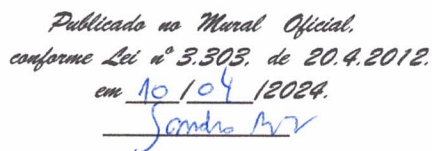 Publicado no Mural Oficial,
conforme Lei nº 3.303, de 20.4.2012.
em 10 / 04 /2024.
Sandra